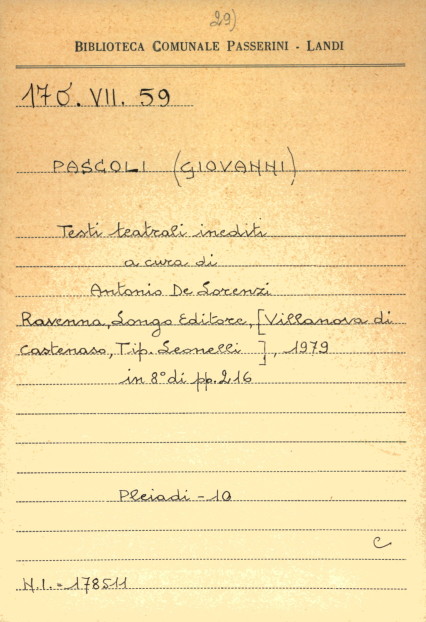 29)
BIBLIOTECA COMUNALE PASSERINI - LANDI
170. VII. 59
PASCOLI (GIOVANNI)
Testi teatrali inediti
a cura di
Antonio De Lorenzi
Ravenna, Longo Editore, [Villanova di
Castenaso, Tip. Leonelli], 1979
in 8° di pp. 216
Pleiadi - 10
C
N.I. = 178511